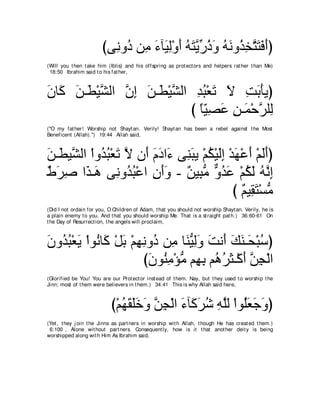 (أَفَتَتَّخِذُونَهُ وَذُرِّيَّتَهُ أَوْلِيَآءَ مِن دُونِى)
(Will you then take him (Iblis) and his offspring as protectors and helpers rather than Me)
18:50 Ibrahim said to his father,
(يأَبَتِ لاَ تَعْبُدِ الشَّيْطَـنَ إِنَّ الشَّيْطَـنَ كَانَ
لِلرَّحْمَـنِ عَصِيّاً )
("O my father! Worship not Shaytan. Verily! Shaytan has been a rebel against the Most
Beneficent (Allah).'') 19:44 Allah said,
(أَلَمْ أَعْهَدْ إِلَيْكُمْ يبَنِى ءَادَمَ أَن لاَّ تَعْبُدُواْ الشَّيطَـنَ
إِنَّهُ لَكُمْ عَدُوٌّ مُّبِينٌ - وَأَنِ اعْبُدُونِى هَـذَا صِرَطٌ
مُّسْتَقِيمٌ )
(Did I not ordain for you, O Children of Adam, that you should not worship Shaytan. Verily, he is
a plain enemy to you. And that you should worship Me. That is a straight path.) 36:60-61 On
the Day of Resurrection, the angels will proclaim,
(سُبْحَـنَكَ أَنتَ وَلِيُّنَا مِن دُونِهِمْ بَلْ كَانُواْ يَعْبُدُونَ
الْجِنَّ أَكْـثَرُهُم بِهِم مُّؤْمِنُونَ)
(Glorified be You! You are our Protector instead of them. Nay, but they used to worship the
Jinn; most of them were believers in them.) 34:41 This is why Allah said here,
(وَجَعَلُواْ لِلَّهِ شُرَكَآءَ الْجِنَّ وَخَلَقَهُمْ)
(Yet, they join the Jinns as partners in worship with Allah, though He has created them.)
6:100 , Alone without partners. Consequently, how is it that another deity is being
worshipped along with Him As Ibrahim said,